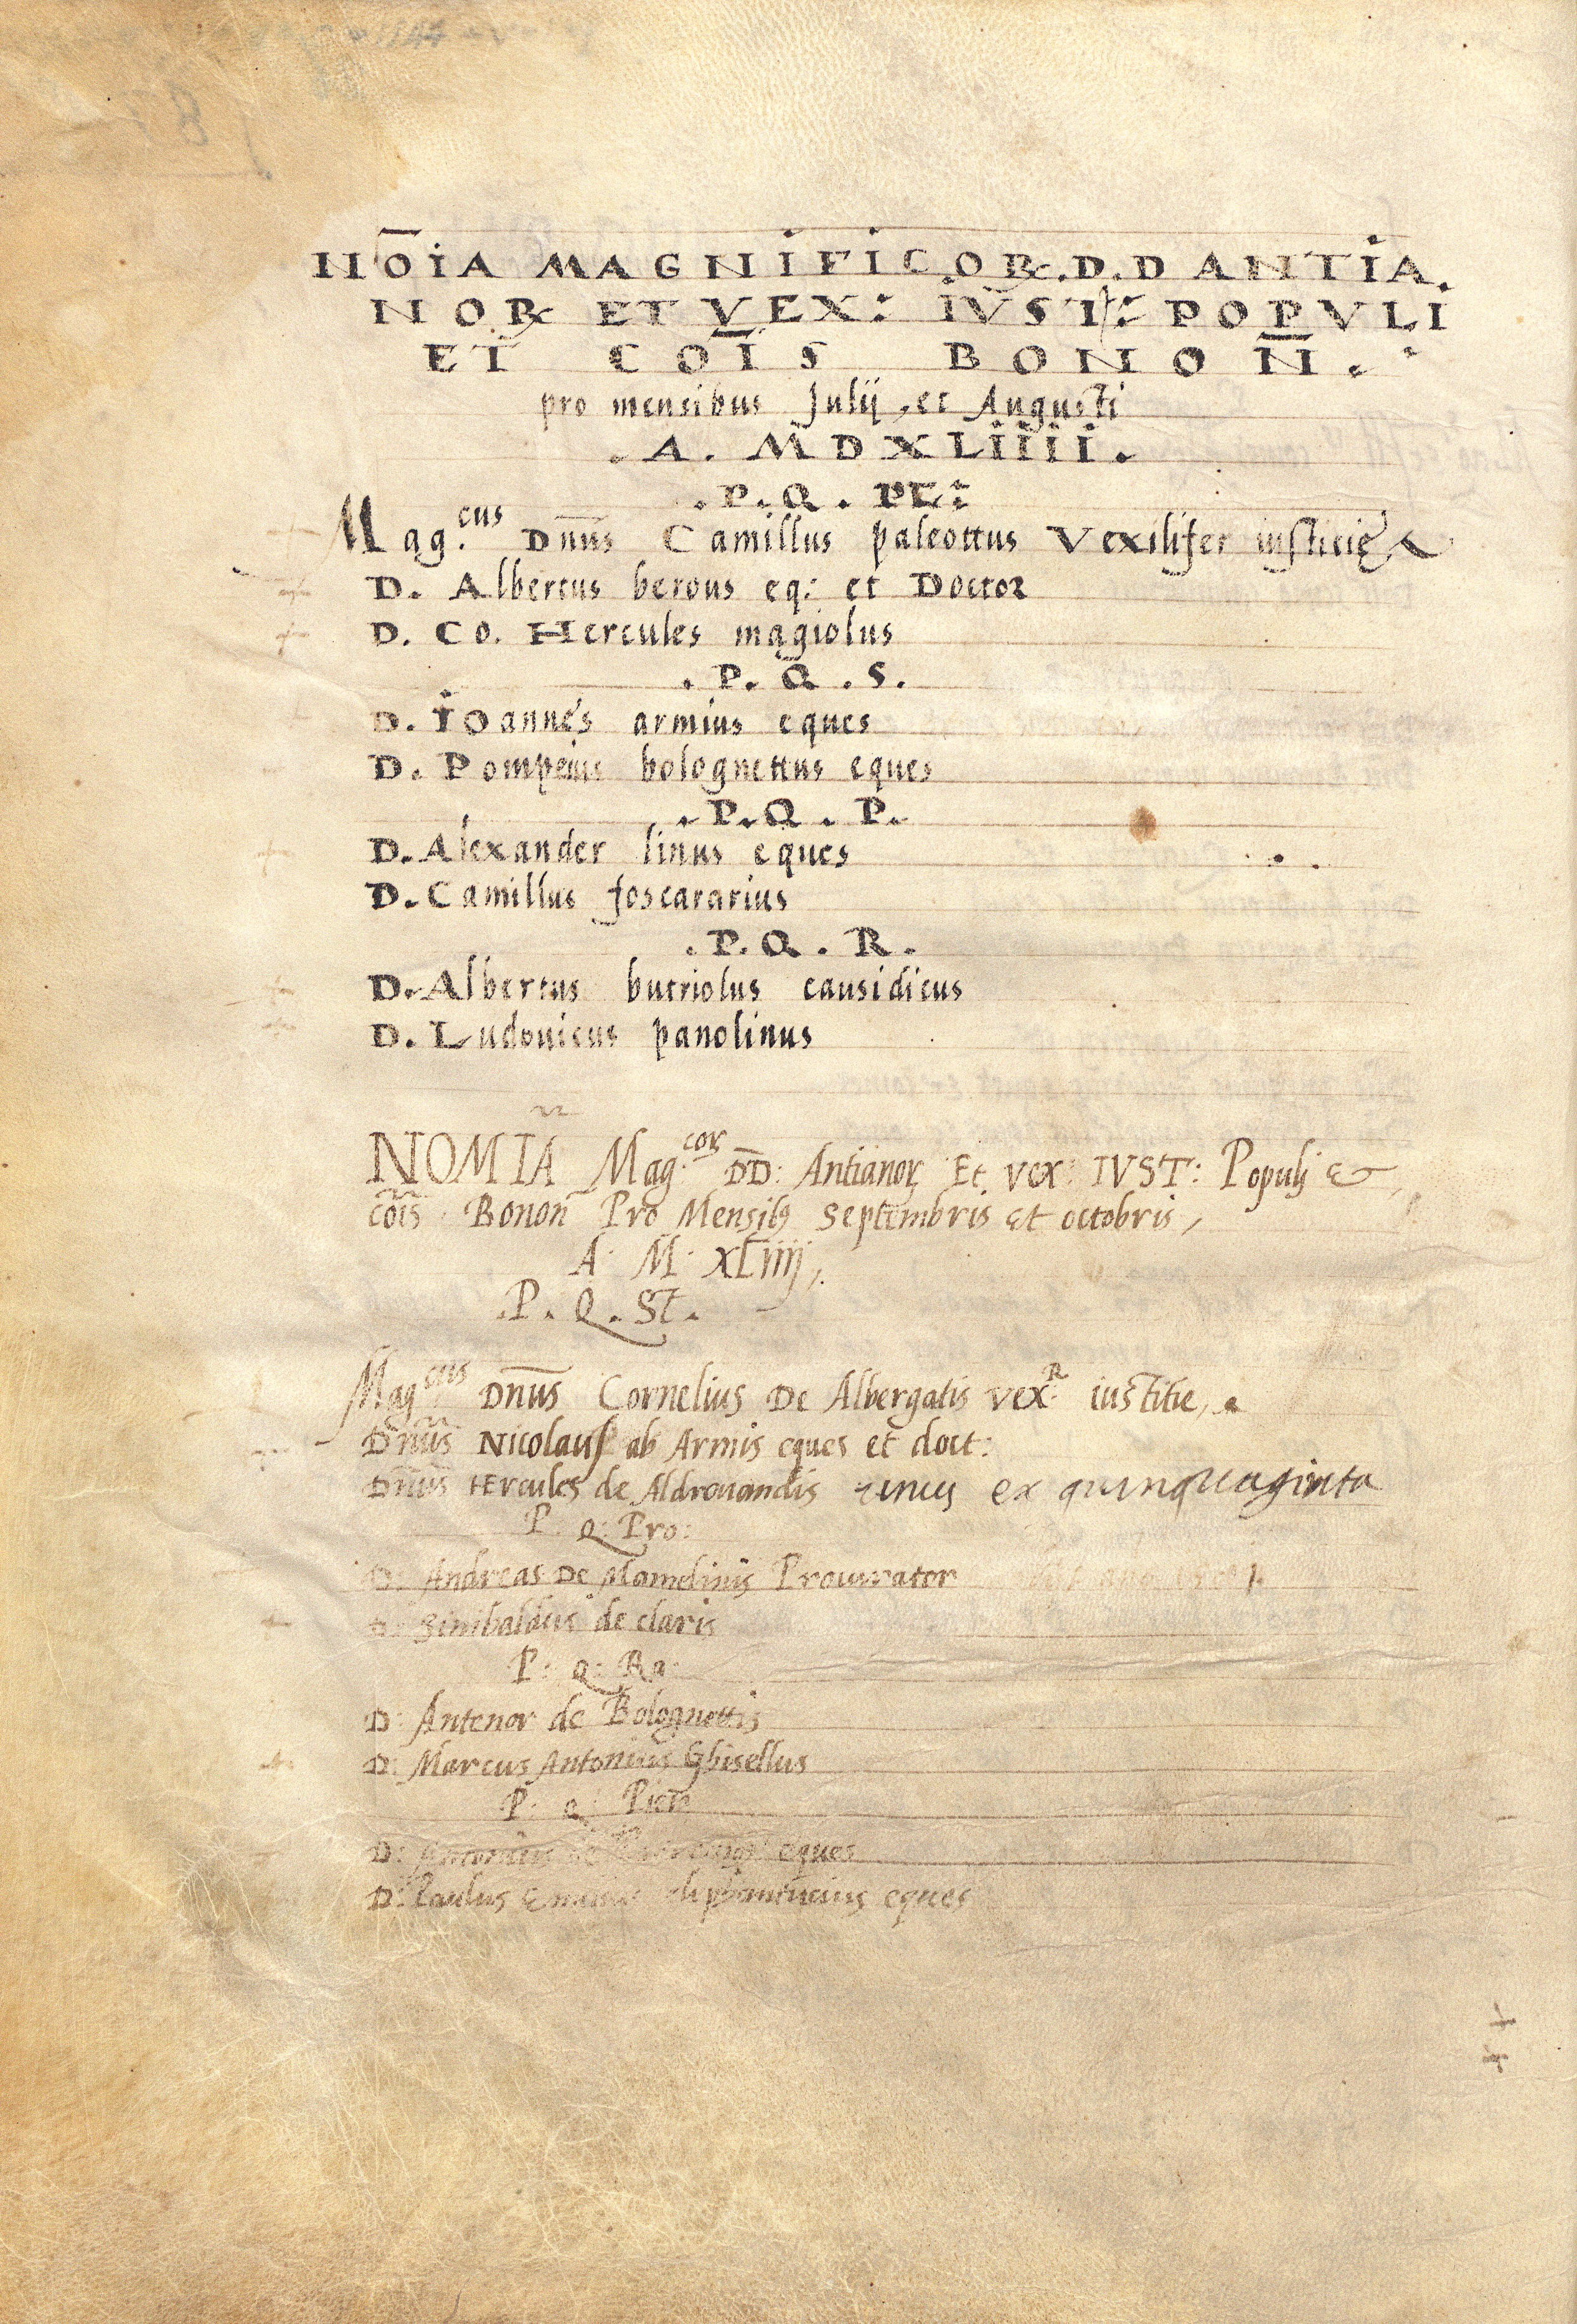 NŌIA MAGNIFICOꝜ.D.D ANTIA.
NOꝜ ET VEX: IVST: POPVLI
ET COĪS BONOÑ.
pro mensibus Julij, et Augusti
.A. MDXLIIII.
.P.Q.
Mag.cus Dnūs Camillus paleottus Vexilifer iusticię
D. Albertus berous eq: et Doctor
D. Co. Hercules magiolus
.P.Q.S.
D. Ioannes armius eques
D. Pompeius bolognettus eques
.P.Q.P.
D. Alexander linus eques
D. Camillus foscararius
.P.Q.R.
D. Albertus butriolus causidicus
D. Ludouicus panolinus
NOMIÃ Mag.coꝝ DD: Antianoꝝ Et vex: IVST: Populj &
cõis Bonoñ Pro Mensibꝰ Septembris Et octobris,
A. M. XLiiij,
.P.Q.St.
Magcus Dnūs Cornelius De Albergatis vex.R iustitie,
Dnūs Nicolaus ab Armis eques et doct:
Dnūs Hercules de Aldrouandis unus ex quinquaginta
P. Q: Pro:
D: Andreas De Mamelinis Procurator
D: Sinibaldus de claris
P: Q: Ra:
D: Antenor de Bolognettis
D: Marcus Antonius Ghisellus
P: Q: Pień
D: Antonius de eques
D: Paulus eques